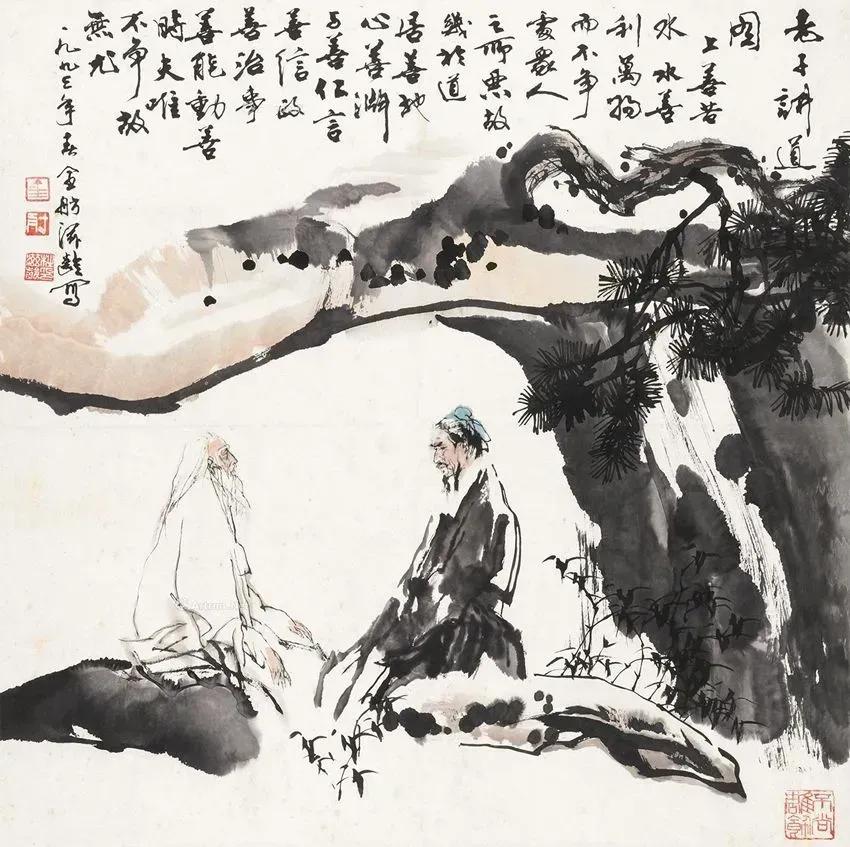 老子講道
圖
上善若
水水善
利萬物
而不爭
處眾人
之所惡故
幾於道
居善地
心善淵
与善仁言
善信政
善治事
善能動善
時夫唯
不爭故
無尤
一九九三年春